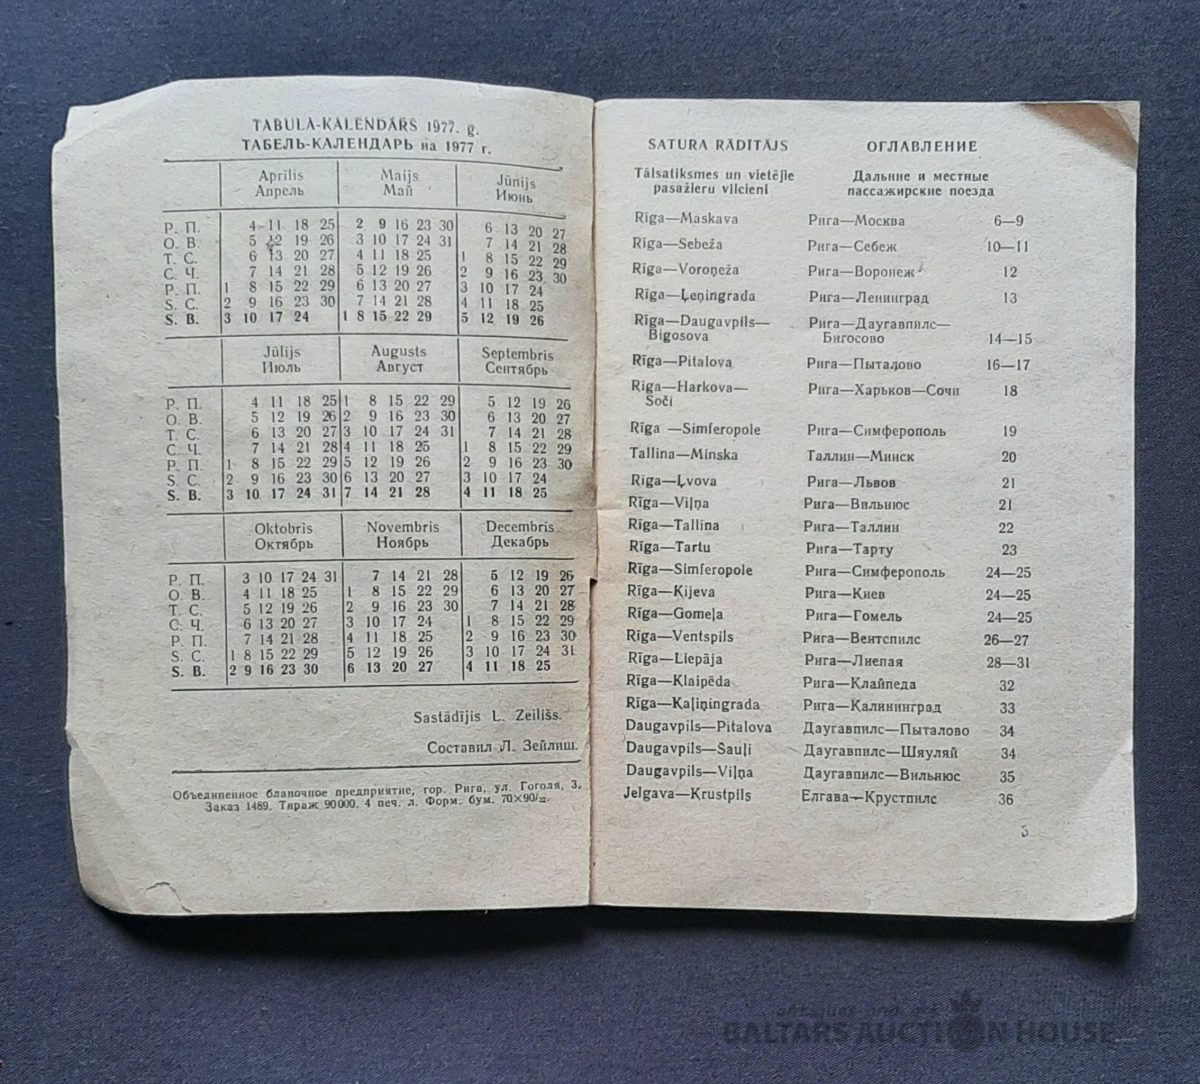 TABULA-KALENDĀRS 1977. g.
ТАБЕЛЬ-КАЛЕНДАРЬ на 1977 г.
Aprīlis Maijs Jūnijs
Апрель Май Июнь
P. П. 4 11 18 25 2 9 16 23 30 6 13 20 27
O. В. 5 12 19 26 3 10 17 24 31 7 14 21 28
T. С. 6 13 20 27 4 11 18 25 1 8 15 22 29
C. Ч. 7 14 21 28 5 12 19 26 2 9 16 23 30
P. П. 1 8 15 22 29 6 13 20 27 3 10 17 24
S. С. 2 9 16 23 30 7 14 21 28 4 11 18 25
S. В. 3 10 17 24 1 8 15 22 29 5 12 19 26
Jūlijs Augusts Septembris
Июль Август Сентябрь
P. П. 4 11 18 25 1 8 15 22 29 5 12 19 26
O. В. 5 12 19 26 2 9 16 23 30 6 13 20 27
T. С. 6 13 20 27 3 10 17 24 31 7 14 21 28
C. Ч. 7 14 21 28 4 11 18 25 1 8 15 22 29
P. П. 1 8 15 22 29 5 12 19 26 2 9 16 23 30
S. С. 2 9 16 23 30 6 13 20 27 3 10 17 24
S. В. 3 10 17 24 31 7 14 21 28 4 11 18 25
Oktobris Novembris Decembris
Октябрь Ноябрь Декабрь
P. П. 3 10 17 24 31 7 14 21 28 5 12 19 26
O. В. 4 11 18 25 1 8 15 22 29 6 13 20 27
T. С. 5 12 19 26 2 9 16 23 30 7 14 21 28
C. Ч. 6 13 20 27 3 10 17 24 1 8 15 22 29
P. П. 7 14 21 28 4 11 18 25 2 9 16 23 30
S. С. 1 8 15 22 29 5 12 19 26 3 10 17 24 31
S. В. 2 9 16 23 30 6 13 20 27 4 11 18 25
Sastādījis L. Zeilišs.
Составил Л. Зейлиш.
Объединенное бланочное предприятие, гор. Рига, ул. Гоголя, 3.
Заказ 1489. Тираж 90000. 4 печ. л. Форм. бум. 70×90/32
SATURA RĀDĪTĀJS ОГЛАВЛЕНИЕ
Tālsatiksmes un vietējie Дальние и местные
pasažieru vilcieni пассажирские поезда
Rīga—Maskava Рига—Москва 6—9
Rīga—Sebeža Рига—Себеж 10—11
Rīga—Voroņeža Рига—Воронеж 12
Rīga—Ļeņingrada Рига—Ленинград 13
Rīga—Daugavpils— Рига—Даугавпилс—
Bigosova Бигосово 14—15
Rīga—Pitalova Рига—Пыталово 16—17
Rīga—Harkova— Рига—Харьков—Сочи 18
Soči
Rīga —Simferopole Рига—Симферополь 19
Tallina—Minska Таллин—Минск 20
Rīga—Ļvova Рига—Львов 21
Rīga—Viļņa Рига—Вильнюс 21
Rīga—Tallina Рига—Таллин 22
Rīga—Tartu Рига—Тарту 23
Rīga—Simferopole Рига—Симферополь 24—25
Rīga—Kijeva Рига—Киев 24—25
Rīga—Gomeļa Рига—Гомель 24—25
Rīga—Ventspils Рига—Вентспилс 26—27
Rīga—Liepāja Рига—Лиепая 28—31
Rīga—Klaipēda Рига—Клайпеда 32
Rīga—Kaļiņingrada Рига—Калининград 33
Daugavpils—Pitalova Даугавпилс—Пыталово 34
Daugavpils—Šauļi Даугавпилс—Шяуляй 34
Daugavpils—Viļņa Даугавпилс—Вильнюс 35
Jelgava—Krustpils Елгава—Крустпилс 36
3
antiques and art
BALTARS AUCTION HOUSE